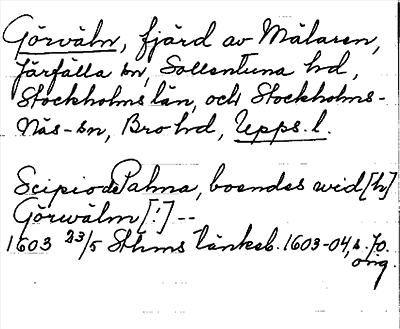 Görväln, fjärd av Mälaren,
Järfälla sn, Sollentuna hd,
Stockholms län, och Stockholms-
Näs-sn, Bro hd, Upps. l.
Scipio de Palma, boendes wid [h]
Görwälm [!] --
1603 23/5 Sthms tänkeb. 1603-04, s. 70.
orig.